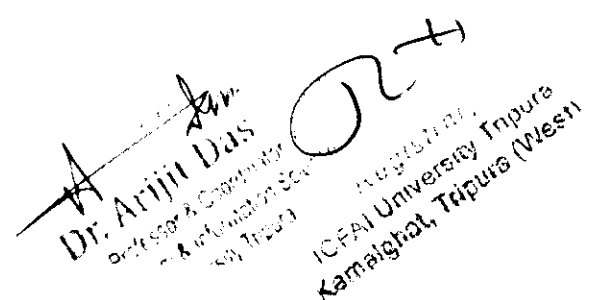 Dr. Arijit Das
Professor & Coordinator
& Information
Tripura
Registrar
ICFAI University Tripura
Kamalghat, Tripura (West)